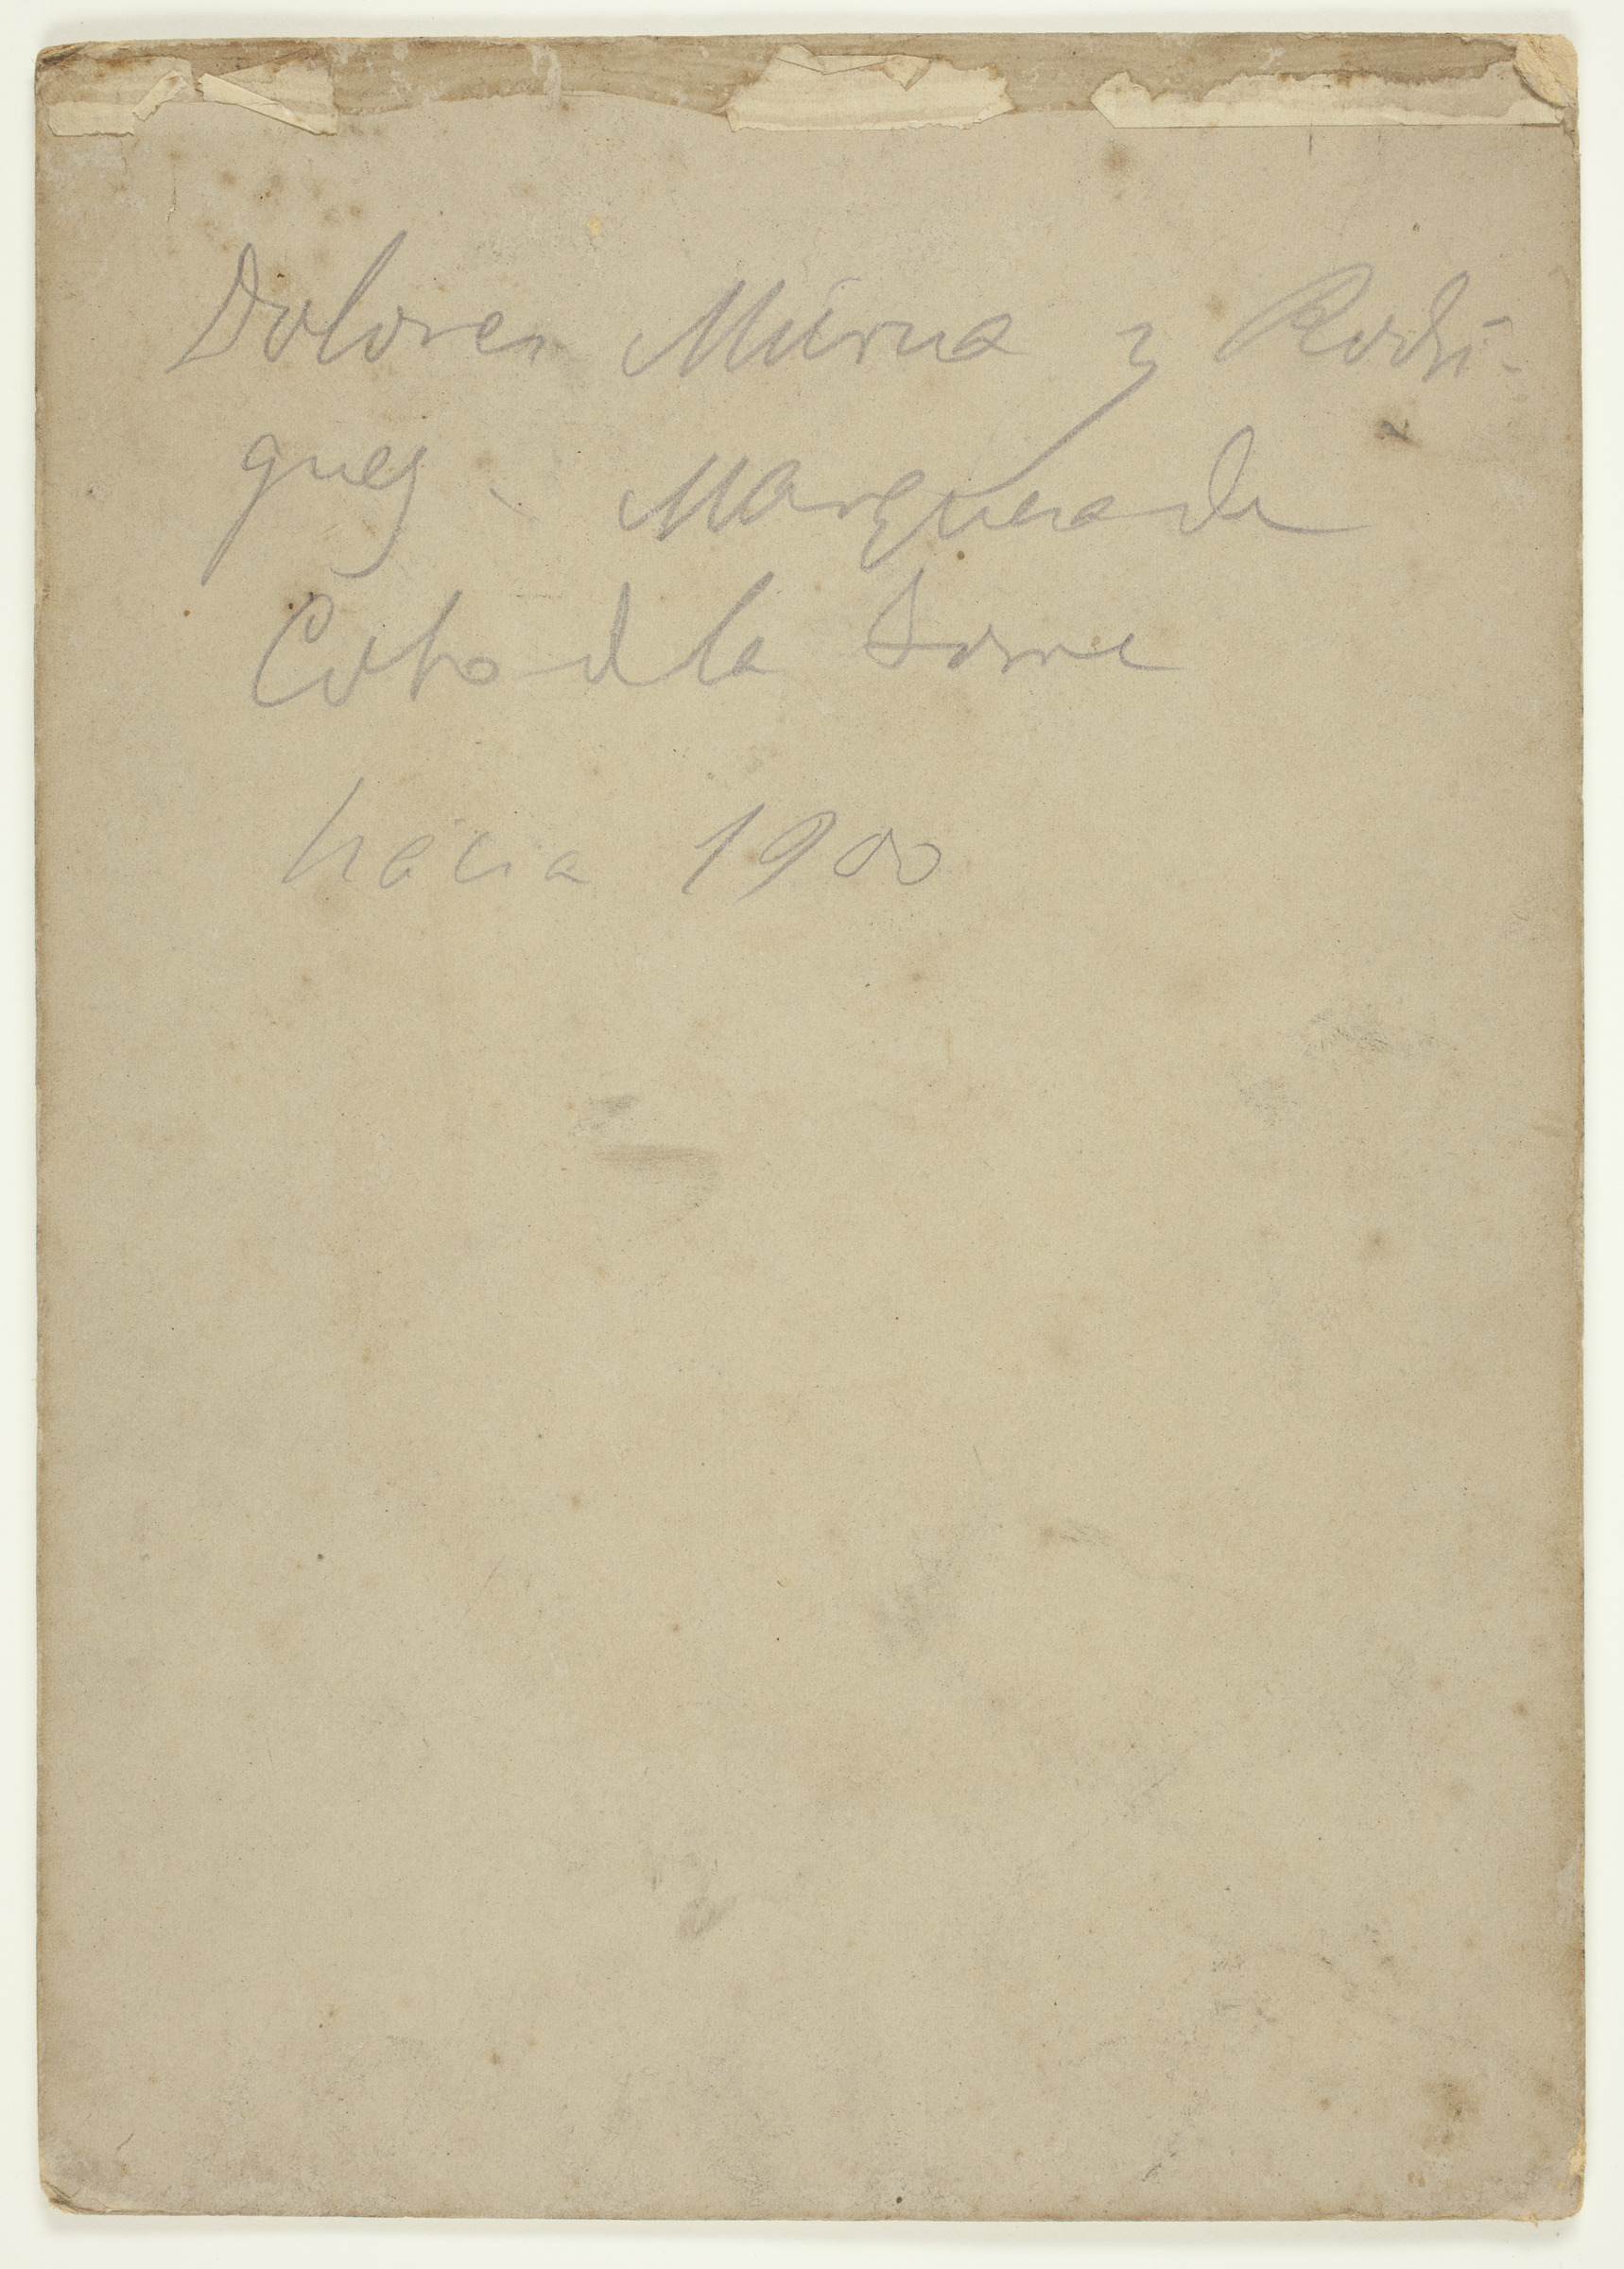 Dolores Múrua y Rodrí-
guez - Marquesa de
Coto d la Torre
hácia 1900